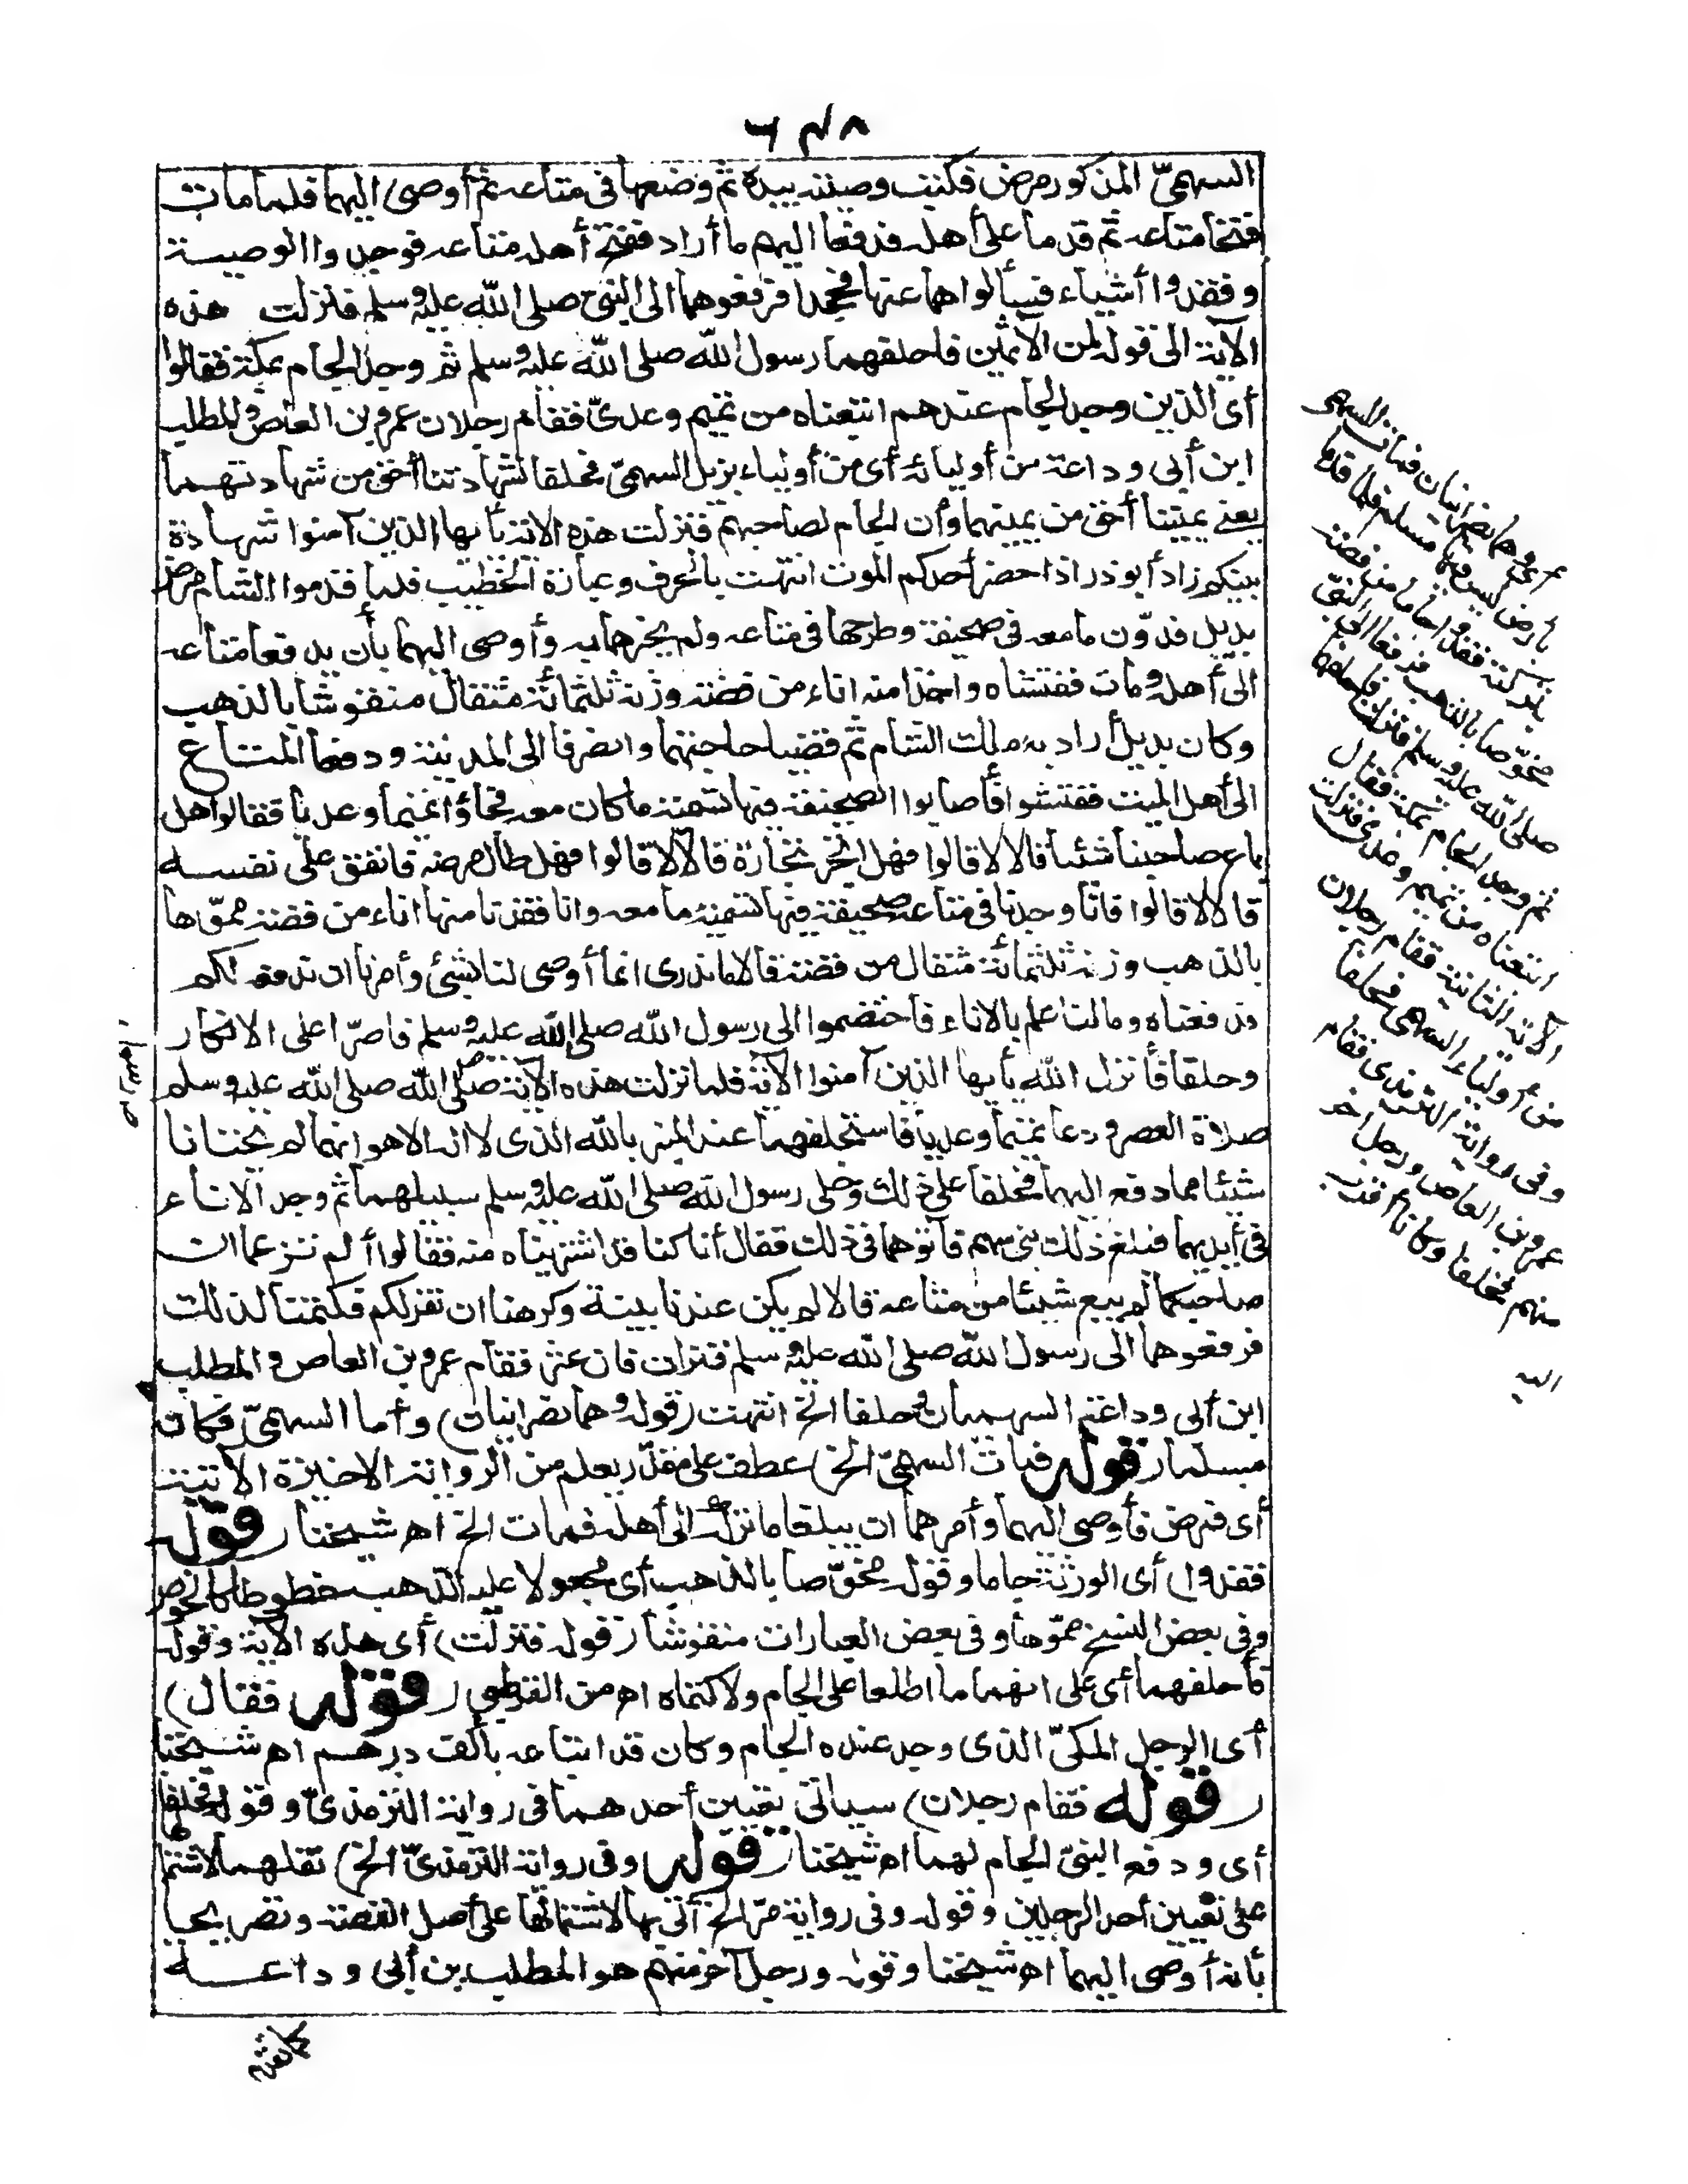 ٦٣٨
السهميّ المذكور مرض فكتب وصيته بيده ثم وضعها فى متاعه ثم أوصى اليهما فلما مات
فتحا متاعه ثم قدما على أهله فدفعا اليهم ما أراد ففتح أهله متاعه فوجدوا الوصية
وفقدوا أشياء فسألوهما عنها فجحدا فرفعوهما الى النبى صلى الله عليه وسلم فنزلت هذه
الآية الى قوله لمن الآثمين فاحلفهما رسول الله صلى الله عليه وسلم ثم وجد الجام بمكة فقالوا
أى الذين وجد الجام عندهم ابتعناه من تميم وعدىّ فقام رجلان عمرو بن العاص والمطلب
ابن أبى وداعة من أوليائه أى من أولياء بزيل السهمىّ فحلفا لشهادتنا أحق من شهادتهما
يعنى يميننا أحق من يمينهما وأن الجام لصاحبهم فنزلت هذه الآية يأيها الذين آمنوا شهادة
بينكم زاد أبو ذر اذا حضر أحدكم الموت انتهت بالحرف وعبارة الخطيب فلما قدموا الشام مرض
بديل فدوّن ما معه فى صحيفة وطرحها فى متاعه ولم يخبرهما به وأوصى اليهما بأن يدفعا متاعه
الى أهله ومات ففتشاه واخذا منه اناء من فضة وزنه ثلثمائة مثقال منقوشا بالذهب
وكان بديل أراد به ملك الشام ثم قضيا حاجتهما وانصرفا الى المدينة ودفعا المتاع
الى أهل الميت ففتشوا فأصابوا الصحيفة فيها تسمية ما كان معه فجاؤا تميما وعديا فقالوا هل
باع صاحبنا شئيا قالا لا قالوا فهل اتجر تجارة قالا لا قالوا فهل طال مرضه فانفق على نفسه
قالا لا قالوا فانا وجدنا فى متاعه صحيفة فيها تسمية ما معه وانا فقدنا منها اناء من فضة مموّها
بالذهب وزنه ثلثمائة مثقال من فضة قالا ما ندرى انما أوصى لنا بشئ وأمرنا ان ندفعه لكم
فدفعناه ومالنا علم بالاناء فاختصموا الى رسول الله صلى الله عليه وسلم فاصرّا على الانكار
وحلفا فأنزل الله يأيها الذين آمنوا الآية فلما نزلت هذه الآية صلى الله صلى الله عليه وسلم
صلاة العصر ودعا تميما وعديا فاستحلفهما عند المنبر بالله الذى لا اله الا هو انهما لم يختانا
شيئا مما دفع اليهما فحلفا على ذلك وخلى رسول الله صلى الله عليه وسلم سبيلهما ثم وجد الاناء
فى أيديهما فبلغ ذلك بنى سهم فأتوهما فى ذلك فقال أنا كنا قد اشتريناه منه فقالوا ألم تزعما ان
صاحبكما لم يبع شيئا من متاعه قالا لم يكن عندنا بينة وكرهنا ان نقر لكم فكتمنا لذلك
فرفعوهما الى رسول الله صلى الله عليه وسلم فنزلت فان عثر فقام عمرو بن العاص والمطلب
ابن أبى وداعة السهميان وحلفا الخ انتهت (قوله وهما نصرانيان) وأما السهمىّ فكان
مسلما (قوله فمات السهمىّ الخ) عطف على مقدّر يعلم من الرواية الاخيرة الآتية
أى فمرض فأوصى اليهما وأمرهما ان يبلغا ما ترك الى أهله فمات الخ اه شيخنا (قوله
فقدوا) أى الورثة جاما وقوله مخوّصا بالذهب أى مجعولا عليه الذهب خطوطا كالخوص
وفى بعض النسخ مموّها وفى بعض العبارات منقوشا (قوله فنزلت) أى هذه الآية وقوله
فأحلفهما أى على انهما ما اطلعا على الجام ولا كتماه اه من القرطبى (قوله فقال)
أى الرجل المكىّ الذى وجد عنده الجام وكان قد ابتاعه بألف درهم اه شيخنا
(قوله فقام رجلان) سيأتى تعيين أحدهما فى رواية الترمذىّ وقوله فحلفا
أى ودفع النبىّ الجام لهما اه شيخنا (قوله وفى رواية الترمذىّ الخ) نقلهما لاشتمالها
على تعيين أحد الرجلين وقوله وفى رواية مرّ الخ أتى بها لاشتمالها على أصل القصة وتصريحها
بأنه أوصى اليهما اه شيخنا وقوله ورجل آخر منهم هو المطلب بن أبى وداعة
كما تقدم
رسول
أى وهما نصرانيان فمات السهمى
بأرض ليس فيها مسلم فلما قدما
بتركته فقدوا جاما من فضة
مخوّصا بالذهب فرفعا الى النبى
صلى الله عليه وسلم فنزلت فأحلفهما
ثم وجد الجام بمكة فقال
ابتعناه من تميم وعدى فنزلت
الآية الثانية فقام رجلان
من أولياء السهمى فحلفا
وفى رواية الترمذى فقام
عمرو بن العاص ورجل آخر
منهم فحلفا وكانا أقرب
اليه